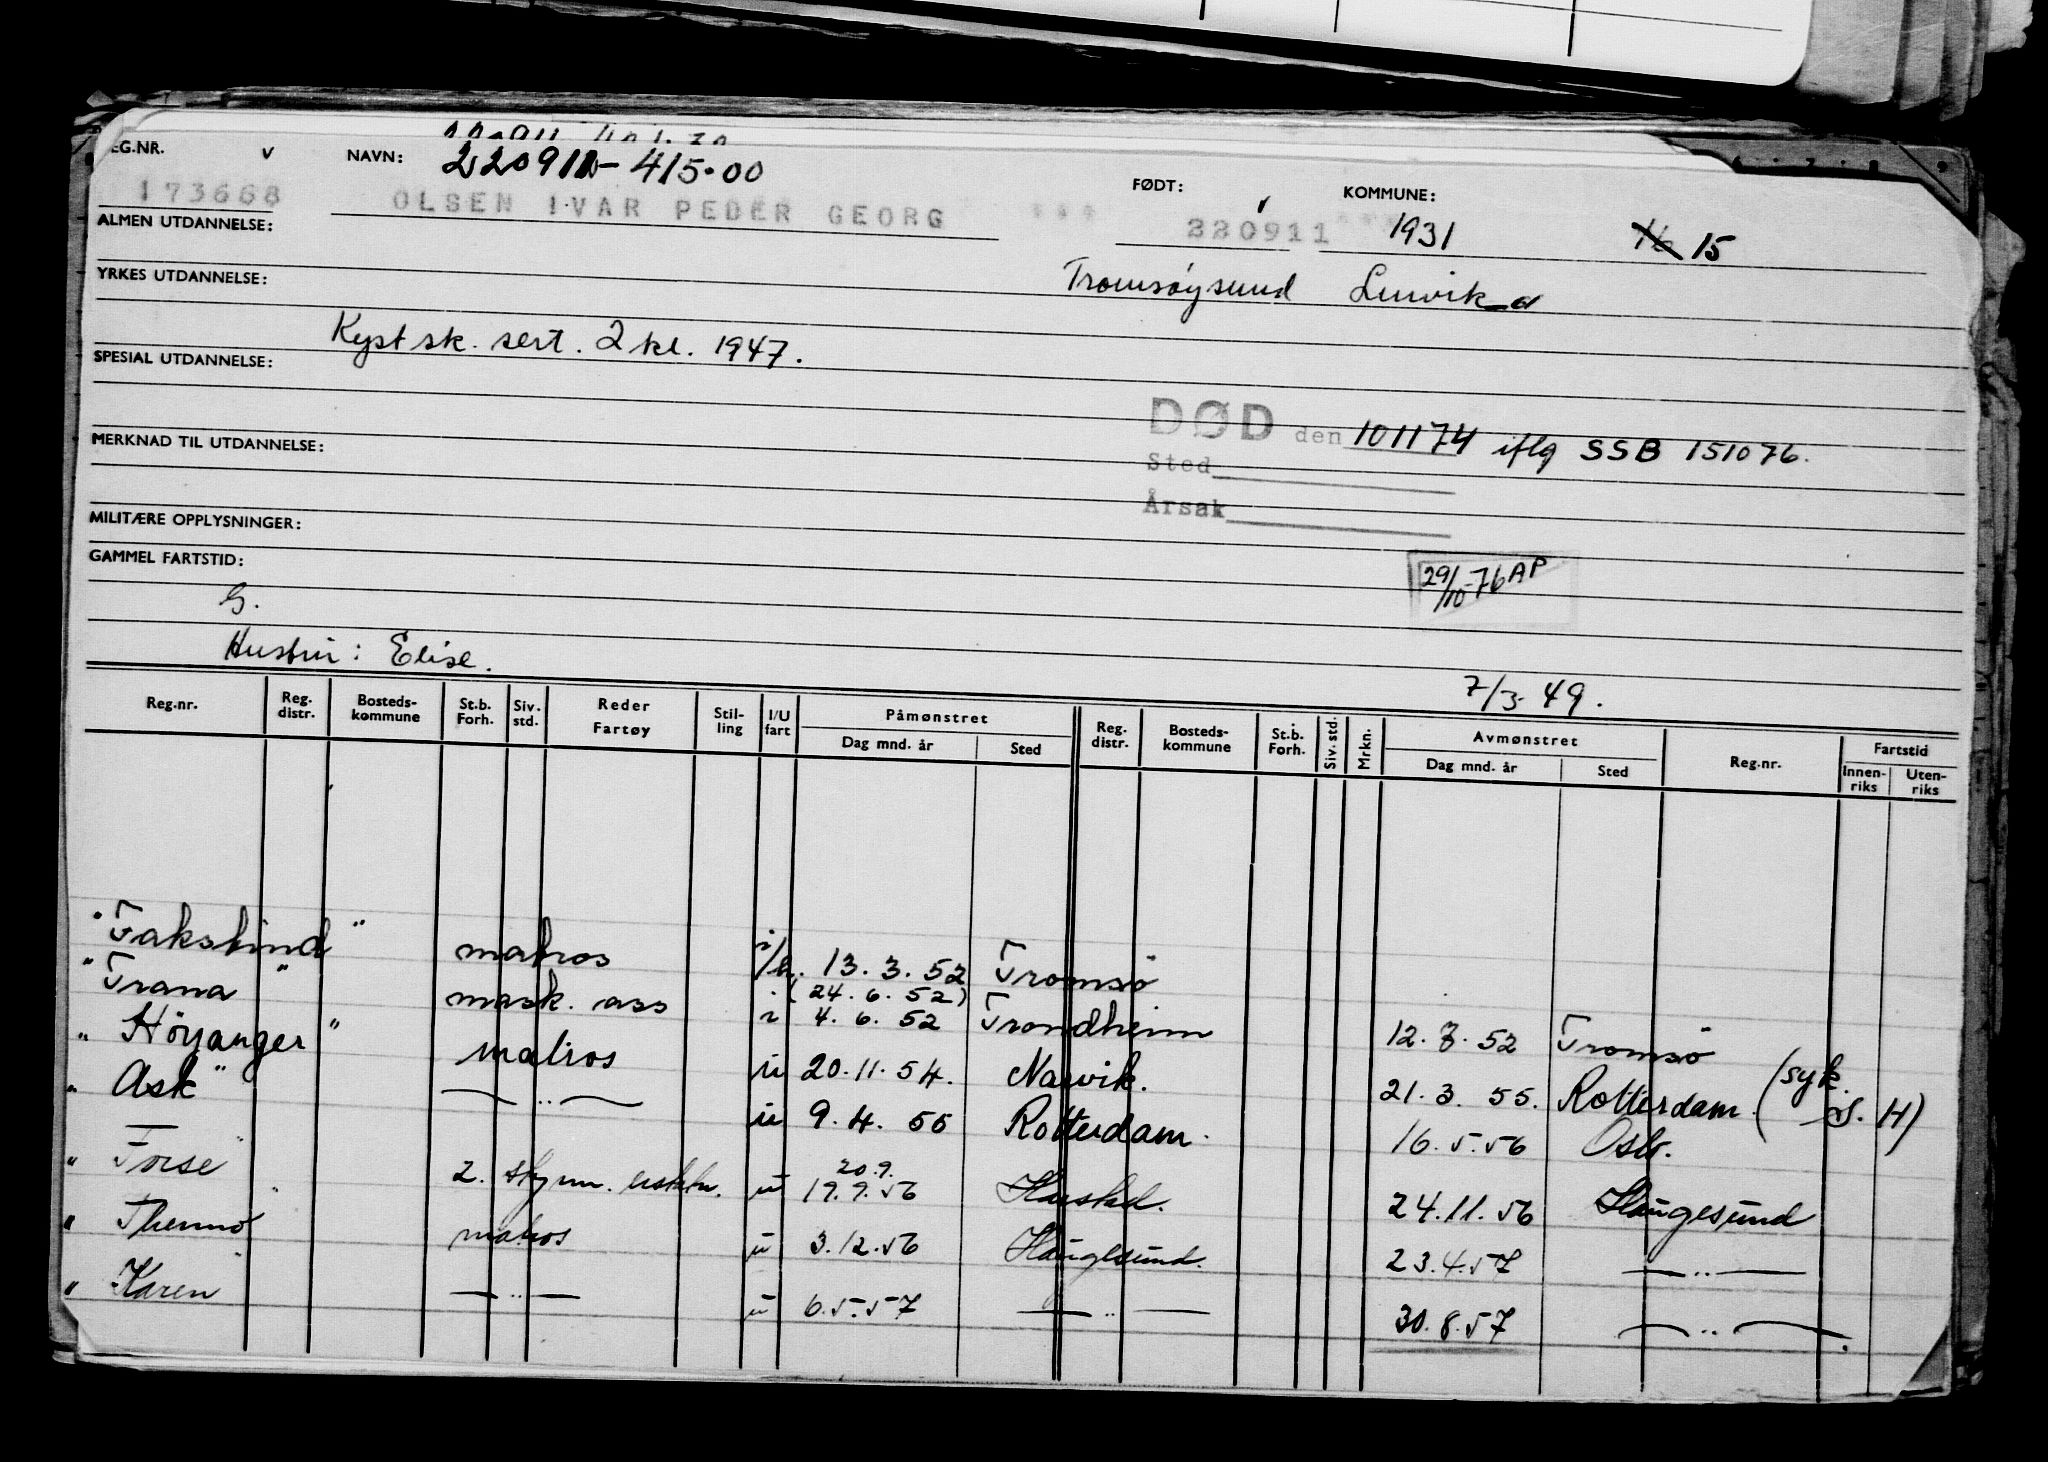 REG.NR. v NAVN: 220911-415.00 FØDT: KOMMUNE:
173668 OLSEN IVAR PEDER GEORG *** 220911 *** 1931 15
ALMEN UTDANNELSE:
YRKES UTDANNELSE: Tromsøysund
Kystsk. sert. 2 kl. 1947.
SPESIAL UTDANNELSE:
DØD den 101174 iflg SSB 151076.
MERKNAD TIL UTDANNELSE:
Sted
Årsak
MILITÆRE OPPLYSNINGER:
GAMMEL FARTSTID:
29/10-76 AP
G.
Hustru: Elise.
7/3-49.
Reg.nr. Reg. distr. Bosteds-kommune St.b. Forh. Siv. std. Reder Fartøy Stil-ling I/U fart Påmønstret Dag mnd. år Sted Reg. distr. Bosteds-kommune St.b. Forh. Siv. std. Mrkn. Avmønstret Dag mnd. år Sted Reg.nr. Fartstid Innen-riks Uten-riks
"Fakstind" matros 13.3.52 Tromsø
(24.6.52)
"Trana" mask. ass i 4.6.52 Trondheim 12.7.52 Tromsø
"Höyanger" matros u 20.11.54. Narvik. 21.3.55. Rotterdam. (syk. S.H)
"Ask" — " — u 9.4.55 Rotterdam. 16.5.56 Oslo.
20.9.
"Torse" 2. u 19.9.56 Harstad. 24.11.56 Haugesund
"Thermo" matros u 3.12.56 Haugesund. 23.4.57 — " —
"Karen" — " — u 6.5.57 — " — 30.8.57 — " — .